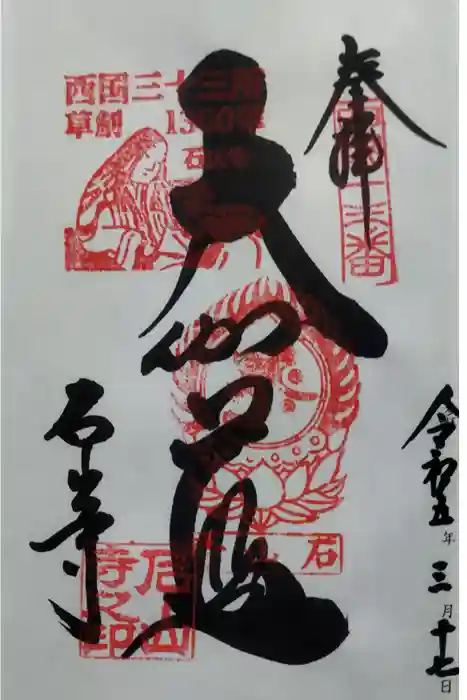 奉拝
西国十三番
令和五年三月十七日
西国三十三所
草創 1300年
石山寺
大伽藍
石山寺
石山寺之印